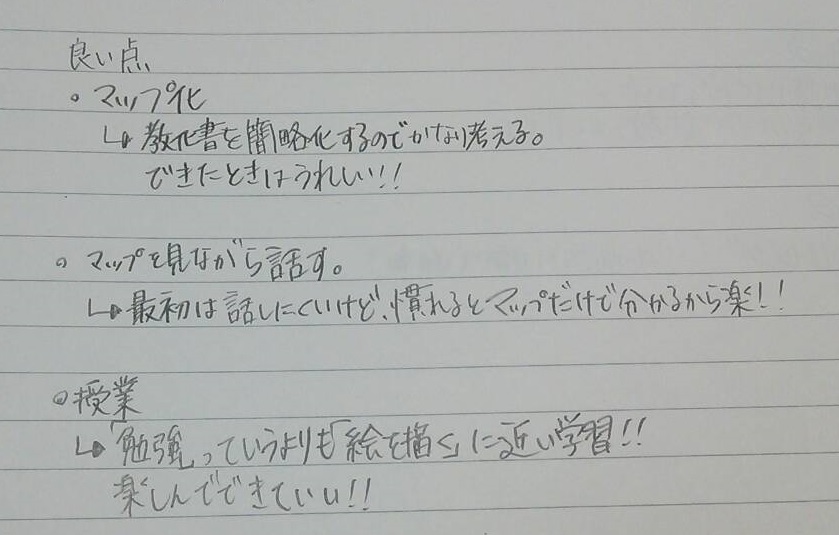 良い点
・マップ化
↳教化書を簡略化するのでかなり考える。
できたときはうれしい!!
・マップを見ながら話す。
↳最初は話しにくいけど、慣れるとマップだけで分かるから楽!!
◎授業
↳「勉強」っていうよりも「絵を描く」に近い学習!!
楽しんでできていい!!